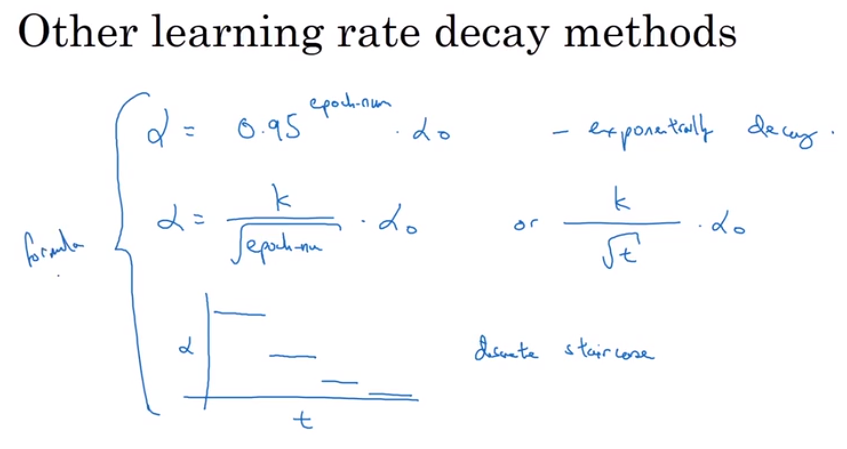 Other learning rate decay methods
α = 0.95^epoch-num · α₀ - exponentially decay.
α = k / √epoch-num · α₀ or k / √t · α₀
formula
α discrete staircase
t